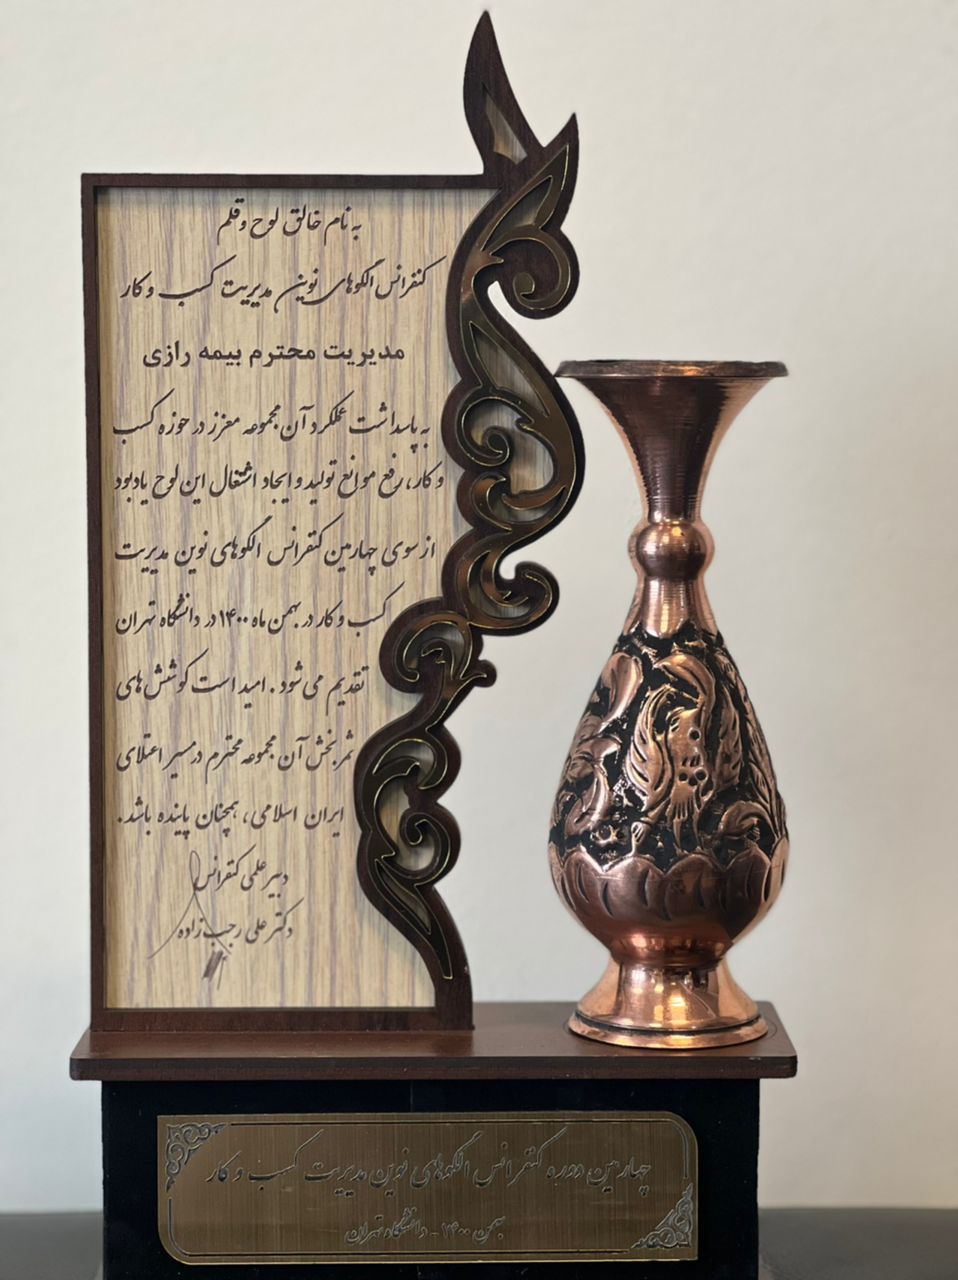 به نام خالق لوح و قلم
کنفرانس الگوهای نوین مدیریت کسب و کار
مدیریت محترم بیمه رازی
به پاسداشت عملکرد آن مجموعه معزز در حوزه کسب
و کار، رفع موانع تولید و ایجاد اشتغال این لوح یادبود
از سوی چهارمین کنفرانس الگوهای نوین مدیریت
کسب و کار در بهمن ماه ۱۴۰۰ در دانشگاه تهران
تقدیم می شود. امید است کوشش های
ثمربخش آن مجموعه محترم در مسیر اعتلای
ایران اسلامی، همچنان پاینده باشد.
دبیر علمی کنفرانس
دکتر علی رجب زاده
چهارمین دوره کنفرانس الگوهای نوین مدیریت کسب و کار
بهمن ۱۴۰۰ - دانشگاه تهران